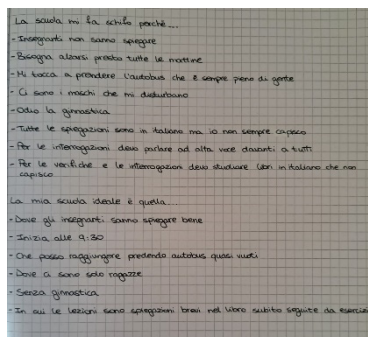 La scuola mi fa schifo perché....
- Insegnanti non sanno spiegare
- Bisogna alzarsi presto tutte le mattine
- Mi tocca a prendere l'autobus che è sempre pieno di gente
- Ci sono i maschi che mi disturbano
- Odio la ginnastica
- Tutte le spiegazioni sono in italiano ma io non sempre capisco
- Per le interrogazioni devo parlare ad alta voce davanti a tutti
- Per le verifiche e le interrogazioni devo studiare libri in italiano che non
capisco
La mia scuola ideale è quella....
- Dove gli insegnanti sanno spiegare bene
- Inizia alle 9:30
- Che posso raggiungere predendo autobus quasi vuoti
- Dove ci sono solo ragazze
- Senza ginnastica
- In cui le lezioni sono spiegazioni brevi nel libro subito seguite da esercizi